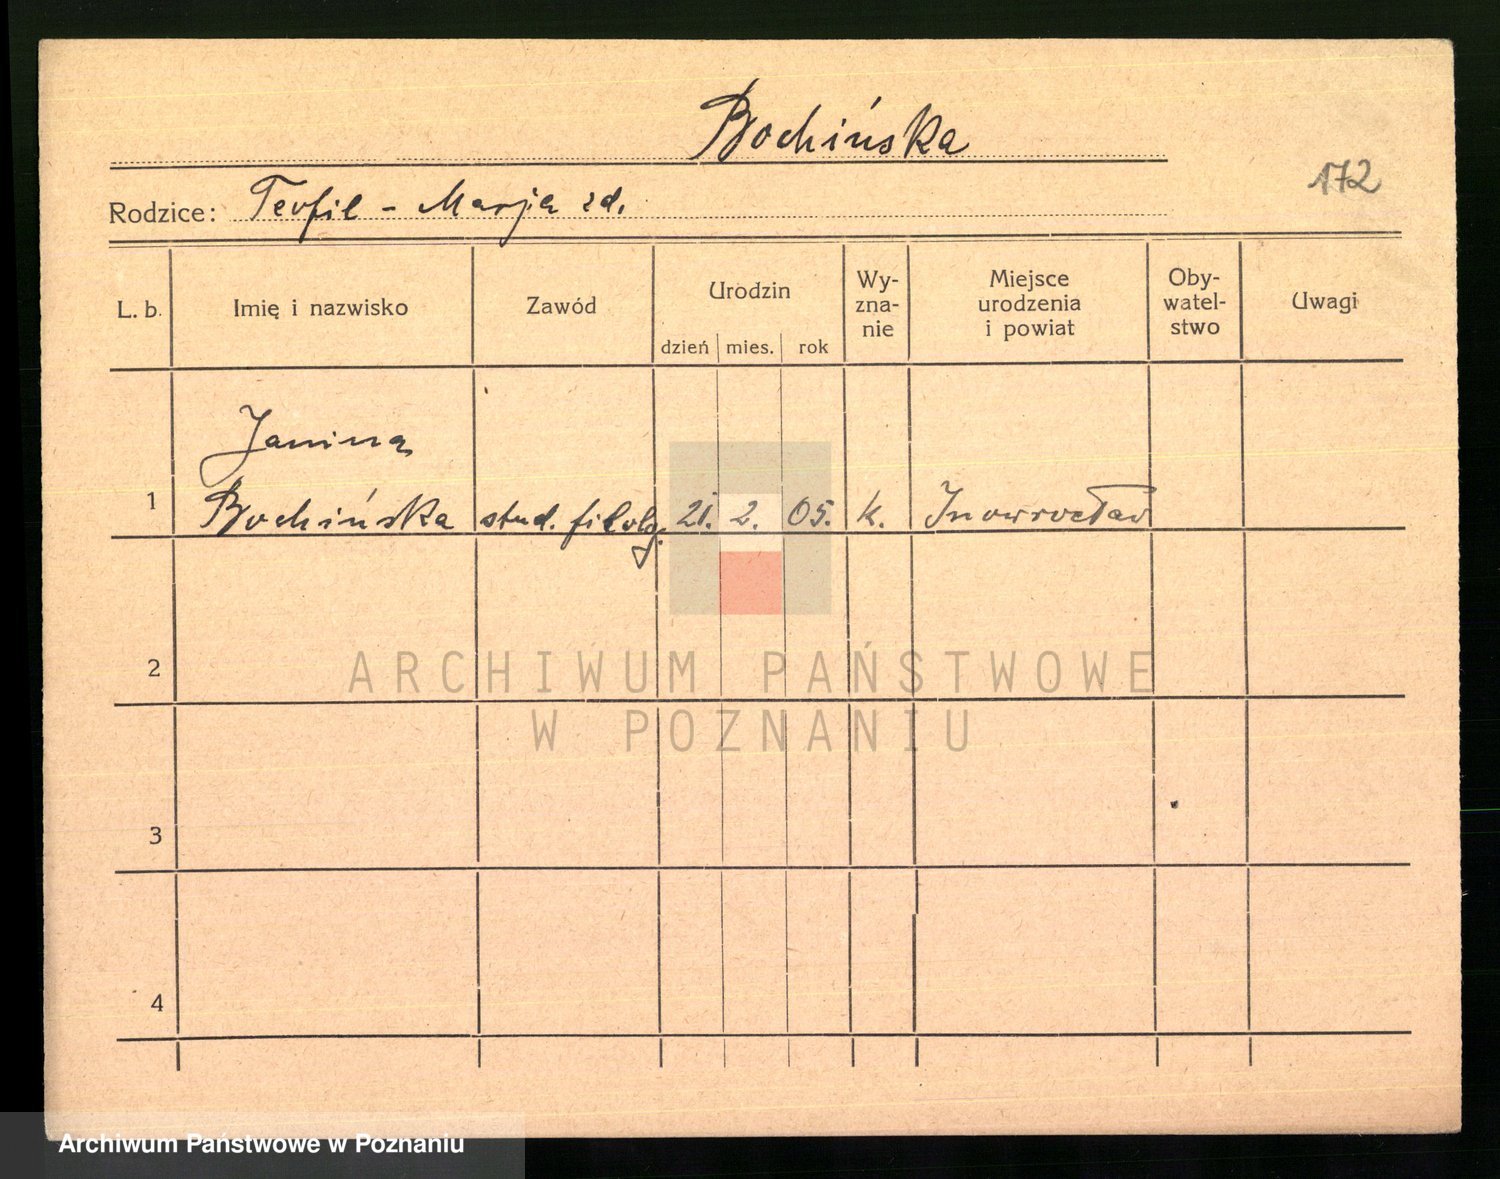 Bochińska
172
Rodzice: Teofil - Marja zd.
L. b. Imię i nazwisko Zawód Urodzin dzień mies. rok Wy-zna-nie Miejsce urodzenia i powiat Oby-watel-stwo Uwagi
Janina
1 Bochińska stud. filolog. 21. 2. 05. k. Inowrocław
2
ARCHIWUM PAŃSTWOWE
W POZNANIU
3
4
Archiwum Państwowe w Poznaniu